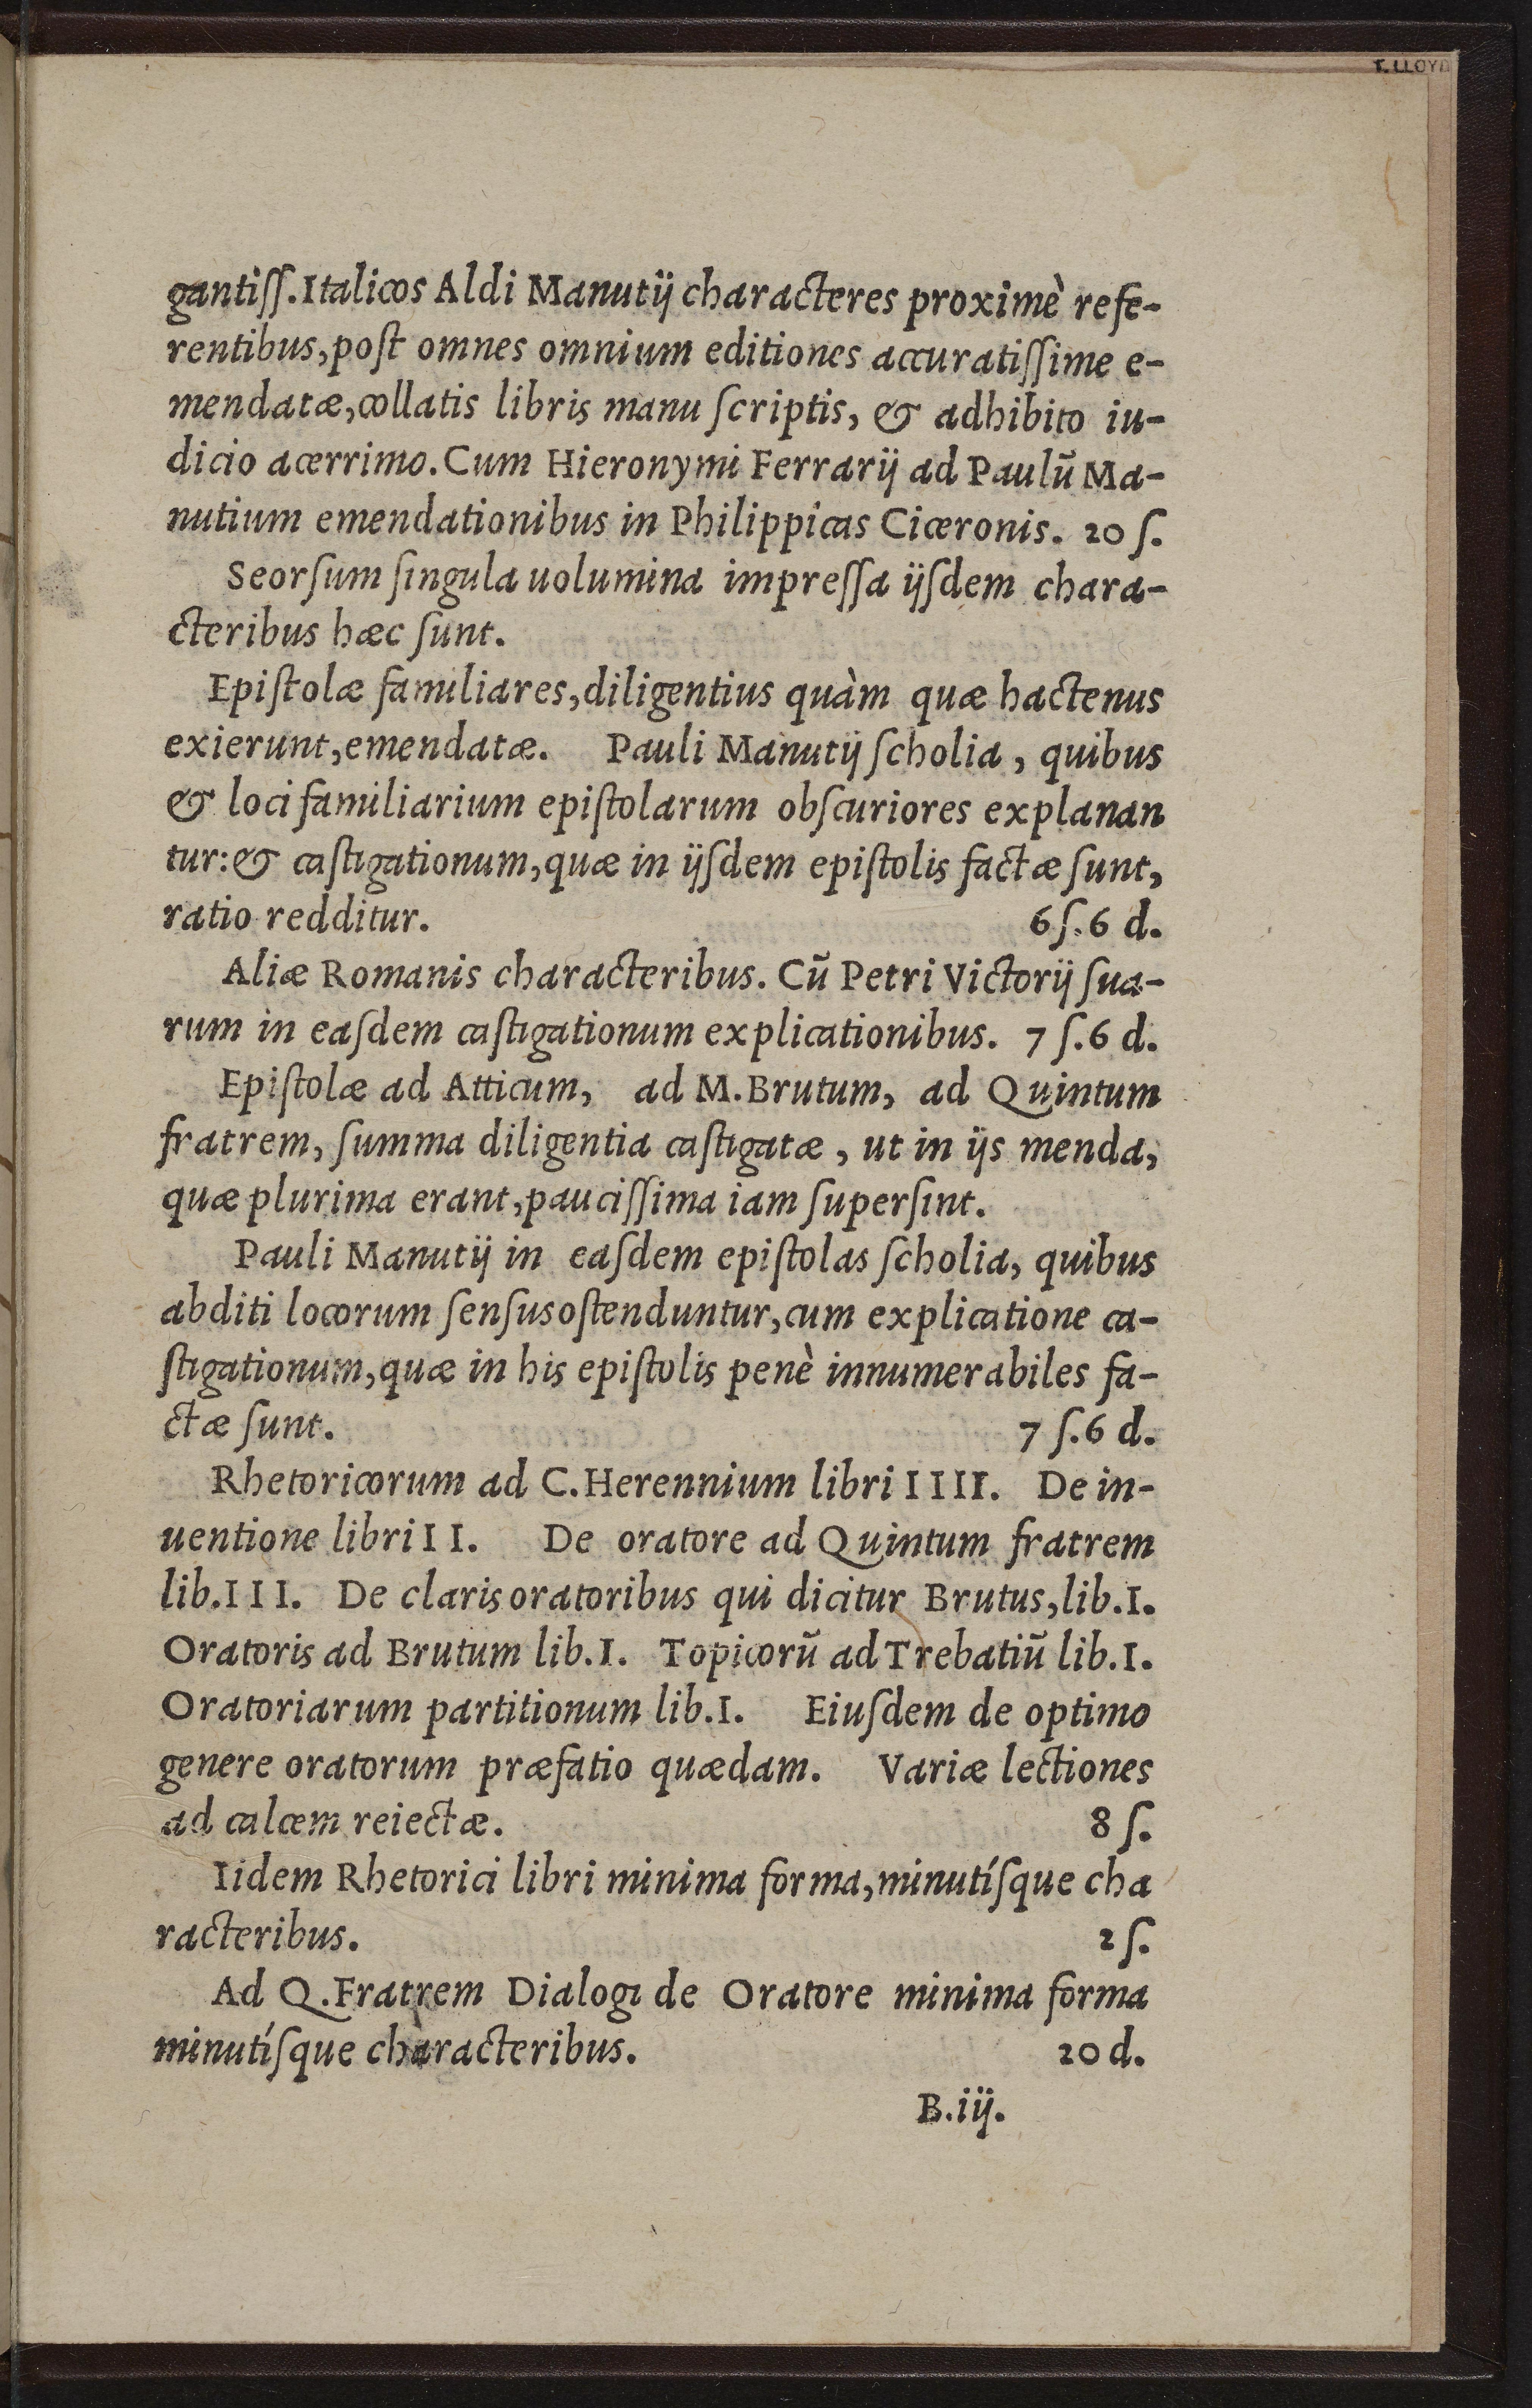 T. LLOYD
gantiſſ. Italicos Aldi Manutij characteres proximè refe-
rentibus, poſt omnes omnium editiones accuratiſſime e-
mendatæ, collatis libris manu ſcriptis, & adhibito iu-
dicio acerrimo. Cum Hieronymi Ferrarij ad Paulū Ma-
nutium emendationibus in Philippicas Ciceronis. 20 ſ.
Seorſum ſingula uolumina impreſſa ijſdem chara-
cteribus hæc ſunt.
Epiſtolæ familiares, diligentius quàm quæ hactenus
exierunt, emendatæ. Pauli Manutij ſcholia, quibus
& loci familiarium epiſtolarum obſcuriores explanan
tur: & caſtigationum, quæ in ijſdem epiſtolis factæ ſunt,
ratio redditur. 6 ſ. 6 d.
Aliæ Romanis characteribus. Cū Petri Victorij ſua-
rum in eaſdem caſtigationum explicationibus. 7 ſ. 6 d.
Epiſtolæ ad Atticum, ad M. Brutum, ad Quintum
fratrem, ſumma diligentia caſtigatæ, ut in ijs menda,
quæ plurima erant, pauciſſima iam ſuperſint.
Pauli Manutij in eaſdem epiſtolas ſcholia, quibus
abditi locorum ſenſus oſtenduntur, cum explicatione ca-
ſtigationum, quæ in his epiſtolis penè innumerabiles fa-
ctæ ſunt. 7 ſ. 6 d.
Rhetoricorum ad C. Herennium libri IIII. De in-
uentione libri II. De oratore ad Quintum fratrem
lib. III. De claris oratoribus qui dicitur Brutus, lib. I.
Oratoris ad Brutum lib. I. Topicorū ad Trebatiū lib. I.
Oratoriarum partitionum lib. I. Eiuſdem de optimo
genere oratorum præfatio quædam. Variæ lectiones
ad calcem reiectæ. 8 ſ.
Iidem Rhetorici libri minima forma, minutíſque cha
racteribus. 2 ſ.
Ad Q. Fratrem Dialogi de Oratore minima forma
minutíſque characteribus. 20 d.
B. iij.